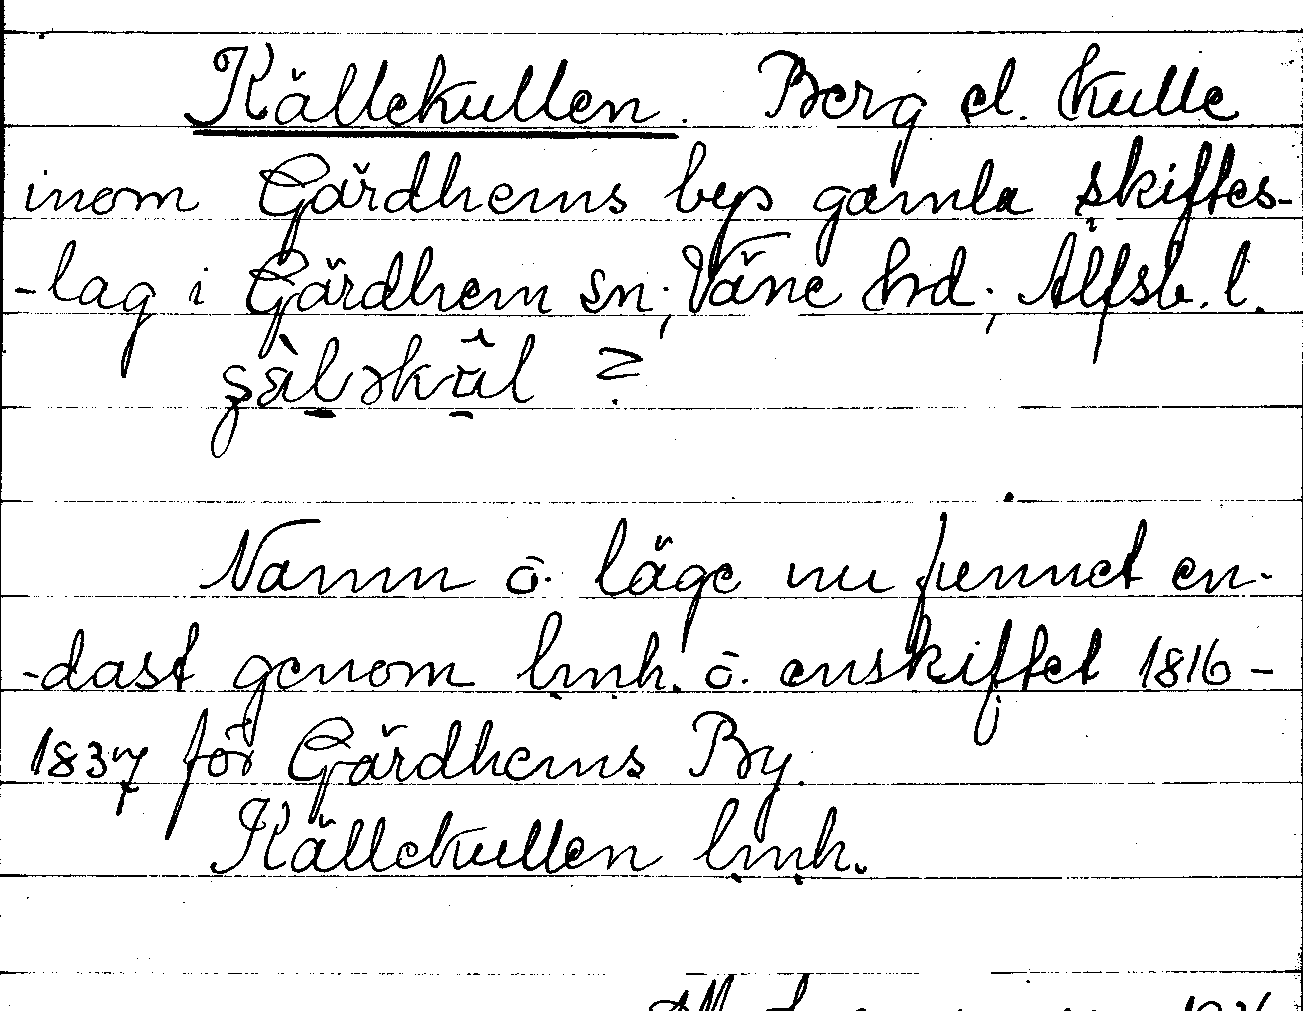 Källekullen. Berg el. kulle
inom Gärdhems bys gamla skiftes-
-lag i Gärdhem sn; Väne hd; Älfsb. l.
Namn o. läge nu funnet en-
-dast genom lmh. o. enskiftet 1816-
1837 för Gärdhems By.
Källekullen lmh.